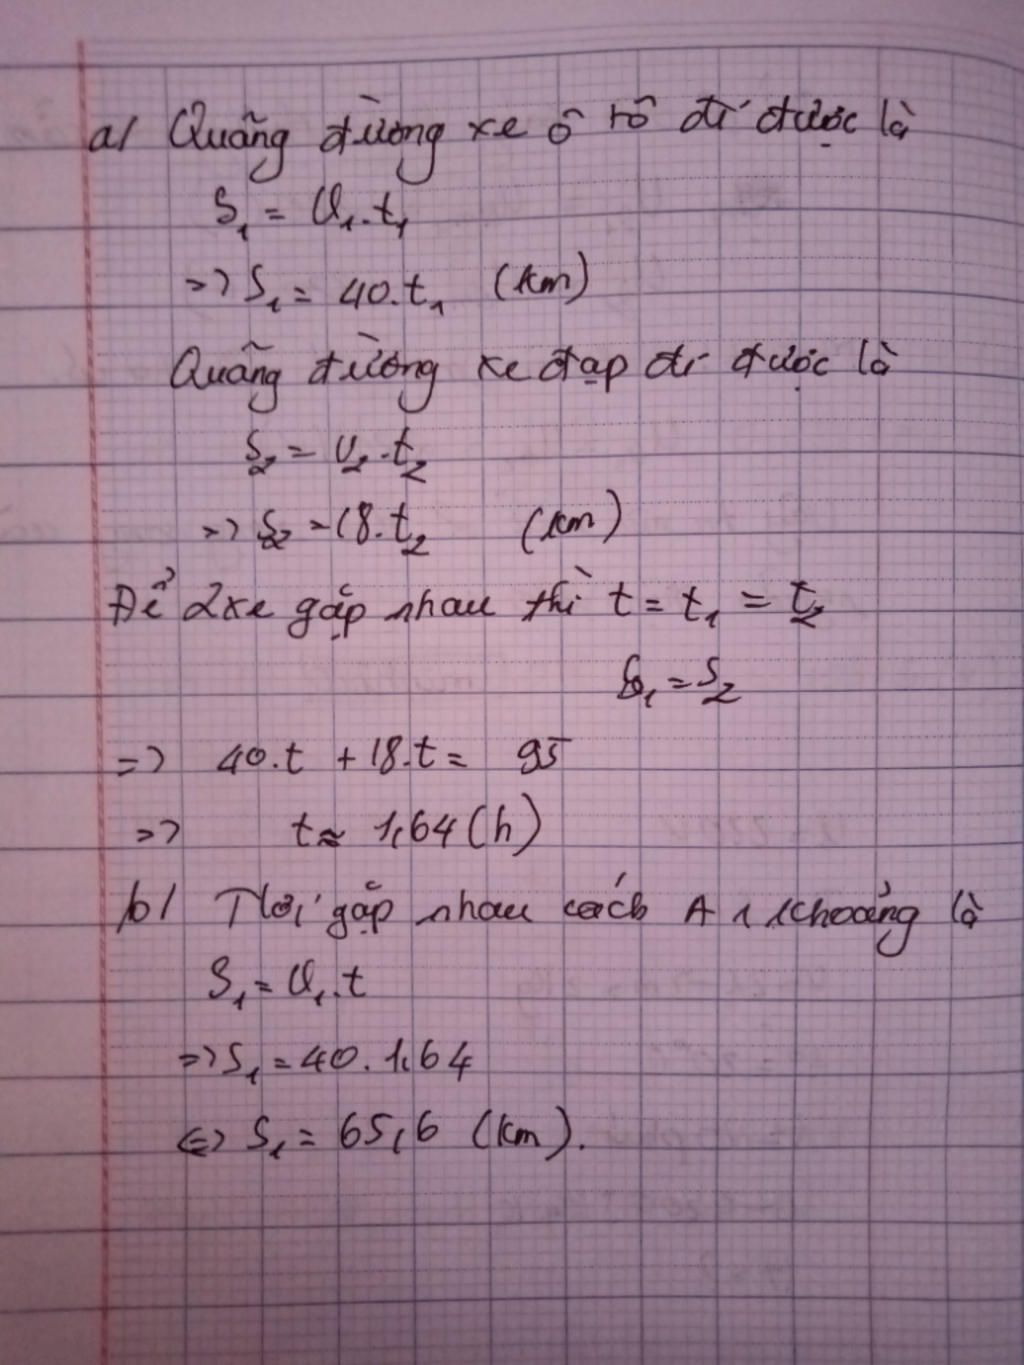 a/ Quãng đường xe ô tô đi được là
S₁ = v₁.t₁
=> S₁ = 40.t₁ (km)
Quãng đường xe đạp đi được là
S₂ = v₂.t₂
=> S₂ = 18.t₂ (km)
Để 2 xe gặp nhau thì t = t₁ = t₂
S₁ = S₂
=> 40.t + 18.t = 95
=> t ≈ 1,64 (h)
b/ Nơi gặp nhau cách A 1 khoảng là
S₁ = v₁.t
=> S₁ = 40.1,64
<=> S₁ = 65,6 (km).